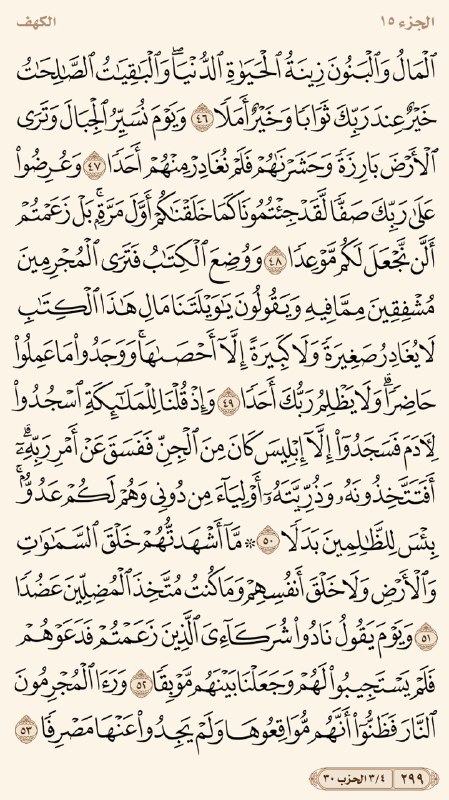 الجزء ١٥ الكهف
ٱلْمَالُ وَٱلْبَنُونَ زِينَةُ ٱلْحَيَوٰةِ ٱلدُّنْيَا ۖ وَٱلْبَٰقِيَٰتُ ٱلصَّٰلِحَٰتُ
خَيْرٌ عِندَ رَبِّكَ ثَوَابًا وَخَيْرٌ أَمَلًا ٤٦ وَيَوْمَ نُسَيِّرُ ٱلْجِبَالَ وَتَرَى
ٱلْأَرْضَ بَارِزَةً وَحَشَرْنَٰهُمْ فَلَمْ نُغَادِرْ مِنْهُمْ أَحَدًا ٤٧ وَعُرِضُوا۟
عَلَىٰ رَبِّكَ صَفًّا لَّقَدْ جِئْتُمُونَا كَمَا خَلَقْنَٰكُمْ أَوَّلَ مَرَّةٍۭ ۚ بَلْ زَعَمْتُمْ
أَلَّن نَّجْعَلَ لَكُم مَّوْعِدًا ٤٨ وَوُضِعَ ٱلْكِتَٰبُ فَتَرَى ٱلْمُجْرِمِينَ
مُشْفِقِينَ مِمَّا فِيهِ وَيَقُولُونَ يَٰوَيْلَتَنَا مَالِ هَٰذَا ٱلْكِتَٰبِ
لَا يُغَادِرُ صَغِيرَةً وَلَا كَبِيرَةً إِلَّآ أَحْصَىٰهَا ۚ وَوَجَدُوا۟ مَا عَمِلُوا۟
حَاضِرًا ۗ وَلَا يَظْلِمُ رَبُّكَ أَحَدًا ٤٩ وَإِذْ قُلْنَا لِلْمَلَٰٓئِكَةِ ٱسْجُدُوا۟
لِءَادَمَ فَسَجَدُوٓا۟ إِلَّآ إِبْلِيسَ كَانَ مِنَ ٱلْجِنِّ فَفَسَقَ عَنْ أَمْرِ رَبِّهِۦٓ ۗ
أَفَتَتَّخِذُونَهُۥ وَذُرِّيَّتَهُۥٓ أَوْلِيَآءَ مِن دُونِى وَهُمْ لَكُمْ عَدُوٌّۢ ۚ
بِئْسَ لِلظَّٰلِمِينَ بَدَلًا ٥٠ ۞ مَّآ أَشْهَدتُّهُمْ خَلْقَ ٱلسَّمَٰوَٰتِ
وَٱلْأَرْضِ وَلَا خَلْقَ أَنفُسِهِمْ وَمَا كُنتُ مُتَّخِذَ ٱلْمُضِلِّينَ عَضُدًا
٥١ وَيَوْمَ يَقُولُ نَادُوا۟ شُرَكَآءِىَ ٱلَّذِينَ زَعَمْتُمْ فَدَعَوْهُمْ
فَلَمْ يَسْتَجِيبُوا۟ لَهُمْ وَجَعَلْنَا بَيْنَهُم مَّوْبِقًا ٥٢ وَرَءَا ٱلْمُجْرِمُونَ
ٱلنَّارَ فَظَنُّوٓا۟ أَنَّهُم مُّوَاقِعُوهَا وَلَمْ يَجِدُوا۟ عَنْهَا مَصْرِفًا ٥٣
٢٩٩ ٣/٤ الحزب ٣٠